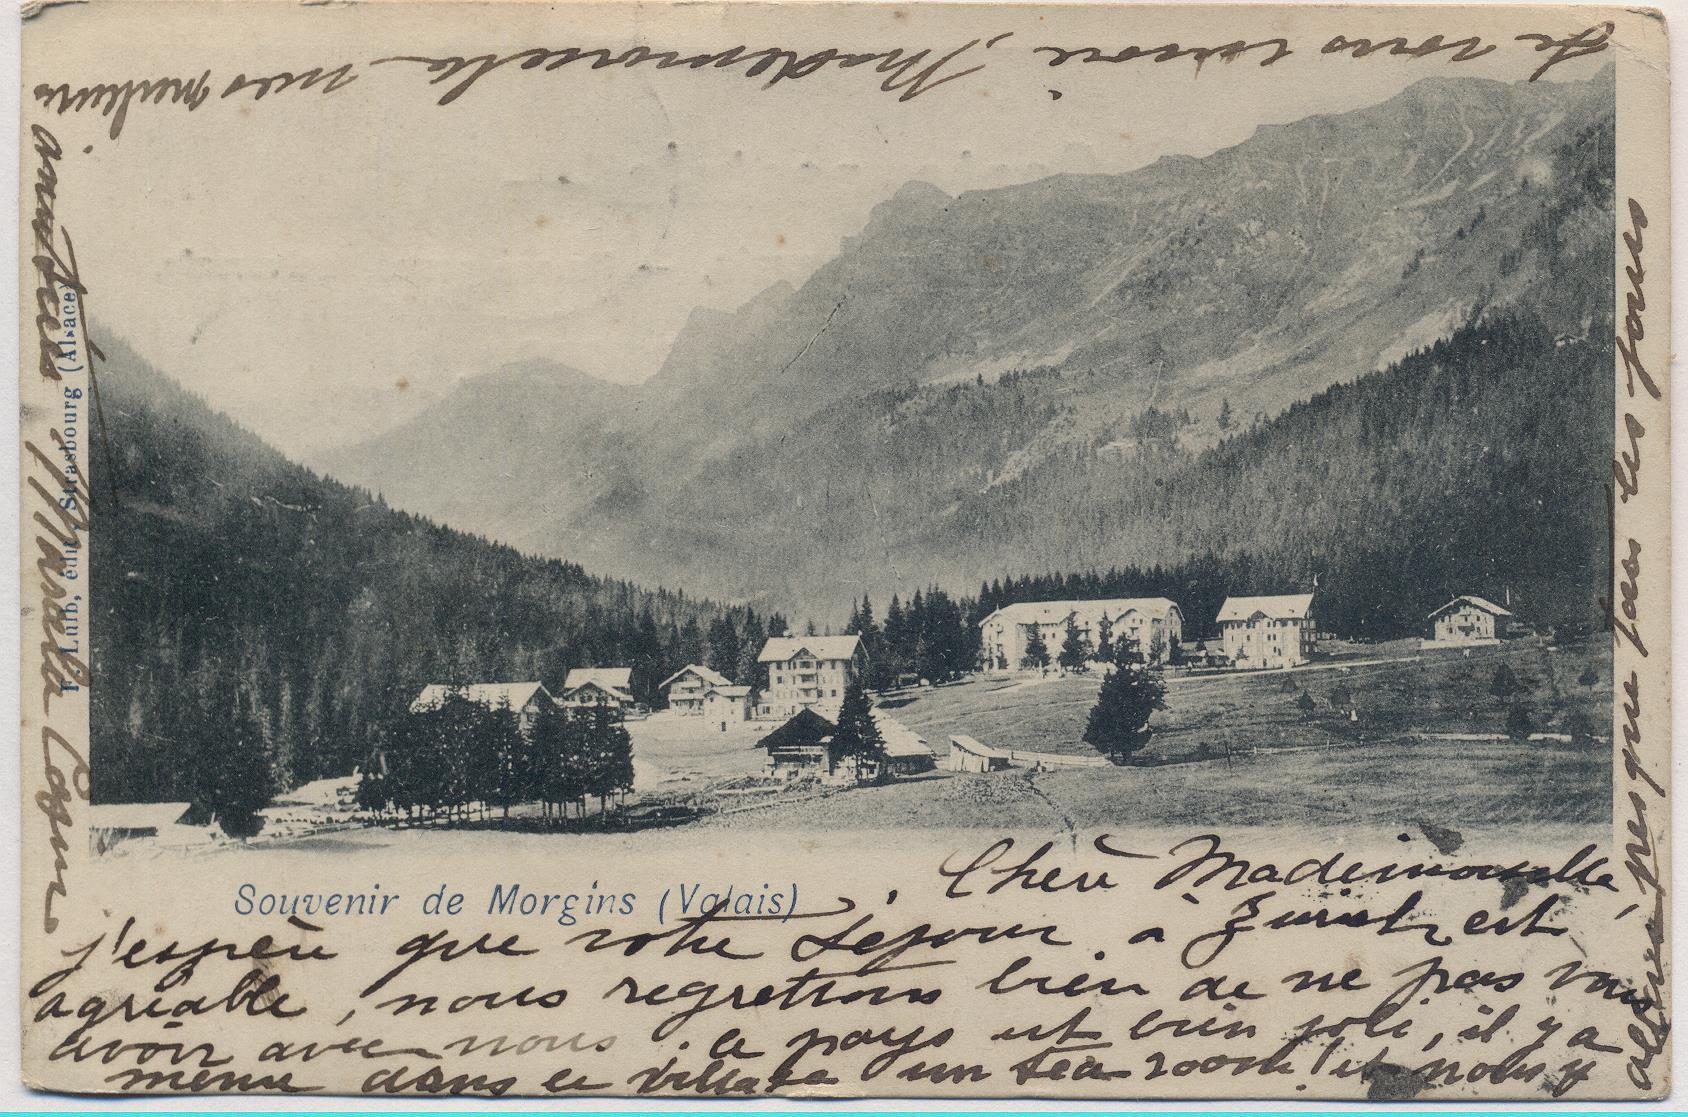 Souvenir de Morgins (Valais)
F. Luib, édit., Strasbourg (Alsace)
Chère Mademoiselle,
j'espère que votre séjour à Zurich est
agréable, nous regrettons bien de ne pas vous
avoir avec nous. Ce pays est bien joli, il y a
même dans ce village un tea room! et nous y
allons presque tous les jours
Je vous envoie, Mademoiselle mes meilleures
amitiés Marcella